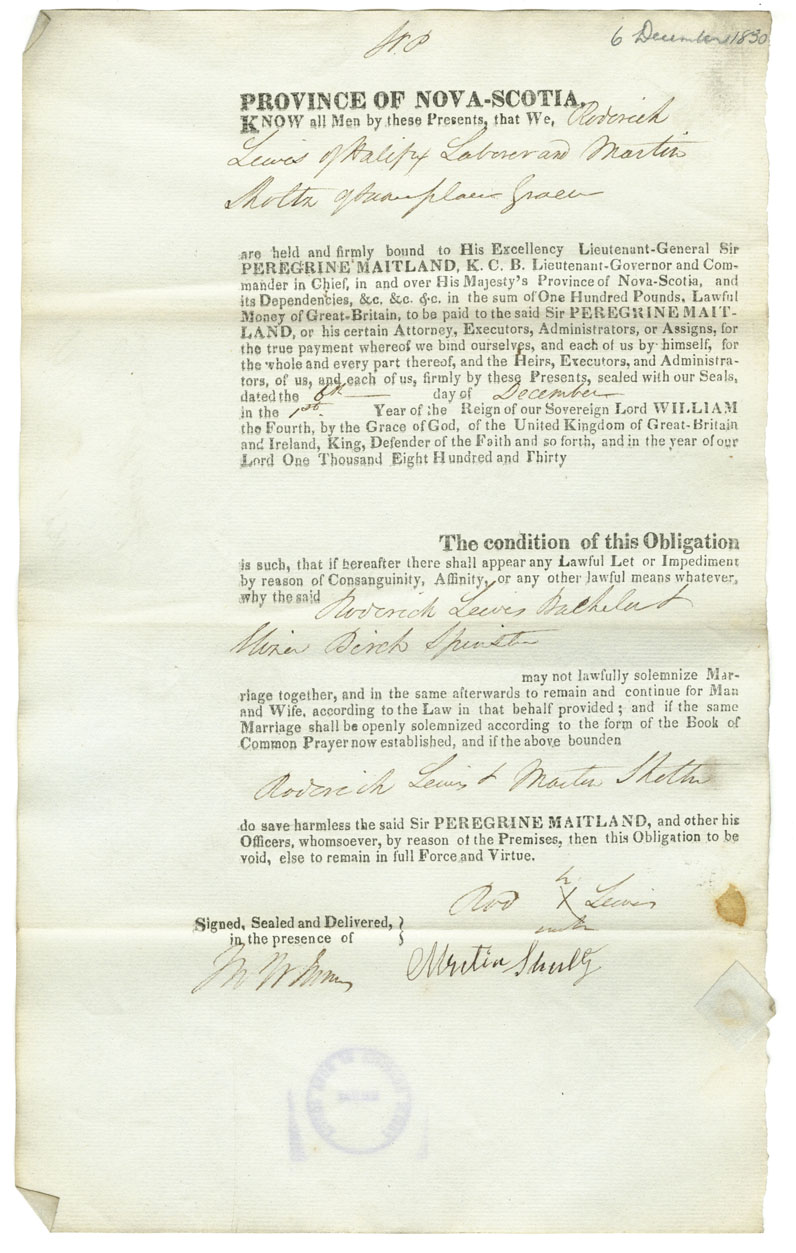 6 December 1830
PROVINCE OF NOVA-SCOTIA.
KNOW all Men by these Presents, that We, Roderick
Lewis of Halifx Laborer and Martin
Sholtz of same place Grocer
are held and firmly bound to His Excellency Lieutenant-General Sir
PEREGRINE MAITLAND, K. C. B. Lieutenant-Governor and Com-
mander in Chief, in and over His Majesty's Province of Nova-Scotia, and
its Dependencies, &c. &c. &c. in the sum of One Hundred Pounds, Lawful
Money of Great-Britain, to be paid to the said Sir PEREGRINE MAIT-
LAND, or his certain Attorney, Executors, Administrators, or Assigns, for
the true payment whereof we bind ourselves, and each of us by himself, for
the whole and every part thereof, and the Heirs, Executors, and Administra-
tors, of us, and each of us, firmly by these Presents, sealed with our Seals,
dated the 6th day of December
in the 1st. Year of the Reign of our Sovereign Lord WILLIAM
the Fourth, by the Grace of God, of the United Kingdom of Great-Britain
and Ireland, King, Defender of the Faith and so forth, and in the year of our
Lord One Thousand Eight Hundred and Thirty
The condition of this Obligation
is such, that if hereafter there shall appear any Lawful Let or Impediment
by reason of Consanguinity, Affinity, or any other lawful means whatever,
why the said Roderick Lewis Bachelor &
Eliza Birch Spinster
may not lawfully solemnize Mar-
riage together, and in the same afterwards to remain and continue for Man
and Wife, according to the Law in that behalf provided; and if the same
Marriage shall be openly solemnized according to the form of the Book of
Common Prayer now established, and if the above bounden
Roderick Lewis & Martin Sholtz
do save harmless the said Sir PEREGRINE MAITLAND, and other his
Officers, whomsoever, by reason of the Premises, then this Obligation to be
void, else to remain in full Force and Virtue.
Rod X Lewis
Signed, Sealed and Delivered,
in the presence of
Martin Shultz